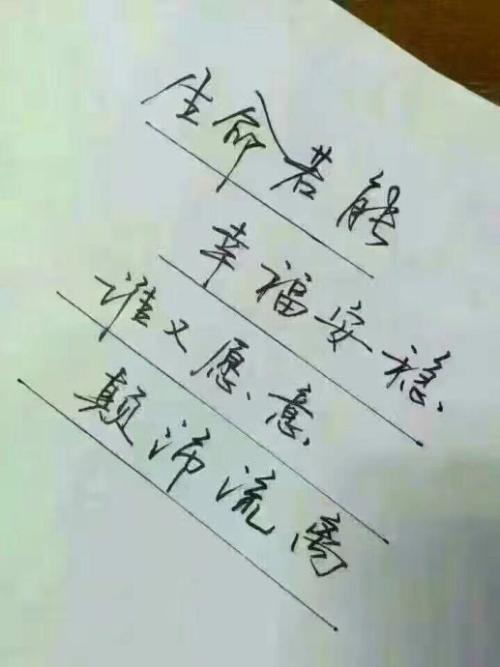 生命若能
幸福安稳
谁又愿意
颠沛流离